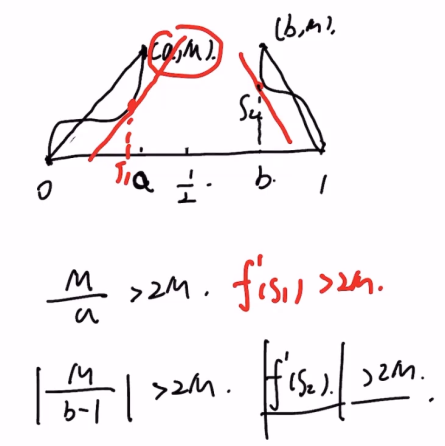 (a,M).
(b,M).
S₁
S₂
0
a
1/2.
b.
1
M/a >2M. f'(S₁) >2M.
|M/(b-1)| >2M. |f'(S₂).| >2M.